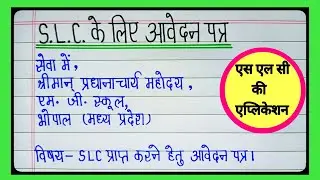 S.L.C. के लिए आवेदन पत्र
सेवा में,
श्रीमान् प्रधानाचार्य महोदय,
एम. जी. स्कूल,
भोपाल (मध्य प्रदेश)
विषय- SLC प्राप्त करने हेतु आवेदन पत्र।
एस एल सी
की
एप्लिकेशन